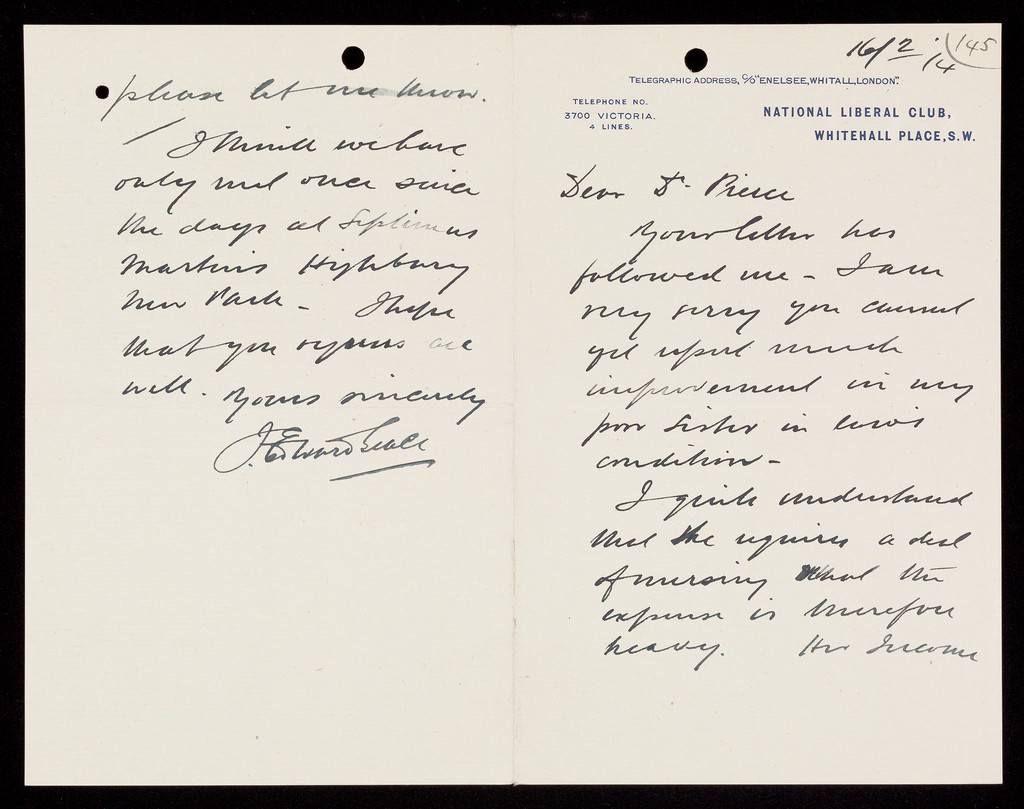 16/2/14
145
TELEGRAPHIC ADDRESS, C/O "ENELSEE, WHITALL, LONDON".
TELEPHONE NO.
3700 VICTORIA.
4 LINES.
NATIONAL LIBERAL CLUB,
WHITEHALL PLACE, S.W.
Dear Dr. Pierce
Your letter has
followed me - I am
very sorry you cannot
yet report much
improvement in my
poor sister in law's
condition -
I quite understand
that she requires a deal
of nursing & that the
expense is therefore
heavy. Her Income
please let me know.
I think we have
only met once since
the days at Septimus
Martins Highbury
New Park - I hope
that you & yours are
well. Yours sincerely
J. Edward